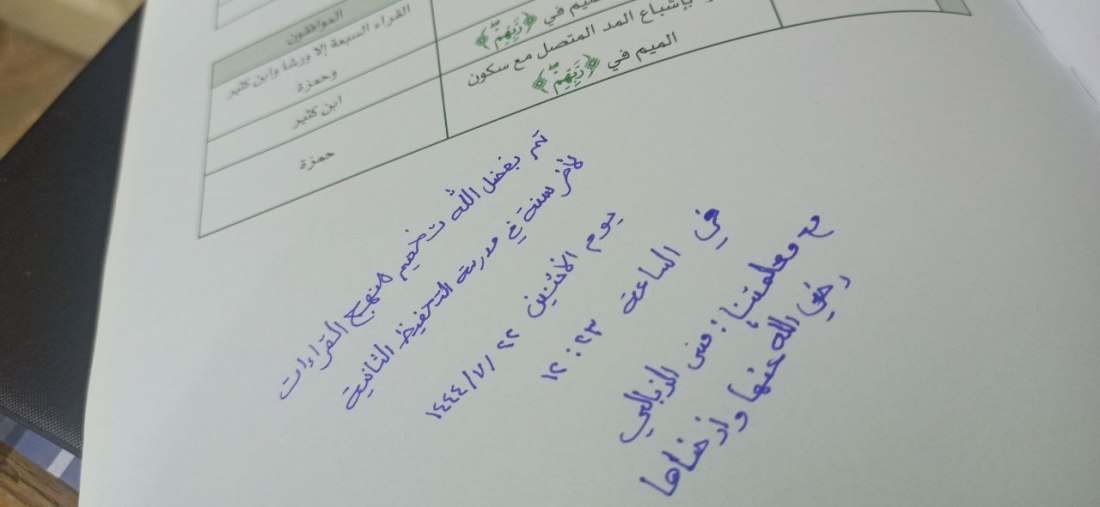 الموافقون
ميم في ﴿رَبِّهِمْ﴾
القراء السبعة إلا ورشا وابن كثير وحمزة
بإشباع المد المتصل مع سكون
الميم في ﴿رَبِّهِمْ﴾
ابن كثير
حمزة
تم بفضل الله تـختيم منهج القراءات
لآخر سنة في مدرسة التحفيظ الثانية
يوم الاثنين ٢٢ /٧/ ١٤٤٤
في الساعة ١٢:٢٣
مع معلمتنا: منى الزبالعي
رضي الله عنها وأرضاها